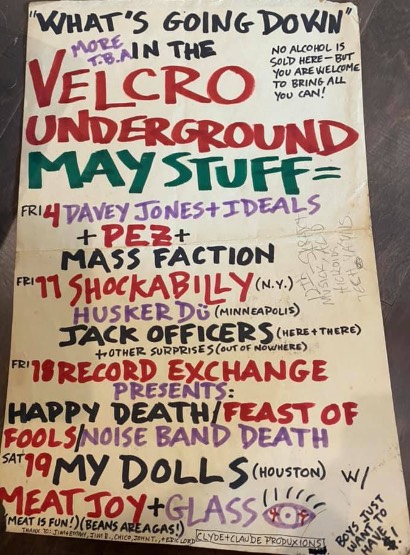 "WHAT'S GOING DOWN"
MORE T.B.A. IN THE
NO ALCOHOL IS
SOLD HERE - BUT
YOU ARE WELCOME
TO BRING ALL
YOU CAN!
VELCRO
UNDERGROUND
MAY STUFF=
FRI 4 DAVEY JONES + IDEALS
+ PEZ +
MASS FACTION
FRI 11 SHOCKABILLY (N.Y.)
HUSKER DÜ (MINNEAPOLIS)
JACK OFFICERS (HERE + THERE)
+ OTHER SURPRISES (OUT OF NOWHERE)
FRI 18 RECORD EXCHANGE
PRESENTS:
HAPPY DEATH/FEAST OF
FOOLS/NOISE BAND DEATH
SAT 19 MY DOLLS (HOUSTON) W/
MEAT JOY + GLASS
(MEAT IS FUN!) (BEANS ARE A GAS!)
THANX TO: JIM B., CHICO, JOHN T., + ERIC LORD
CLYDE + CLAUDE PRODUXIONS
BOYS JUST
WANT TO
HAVE
$.